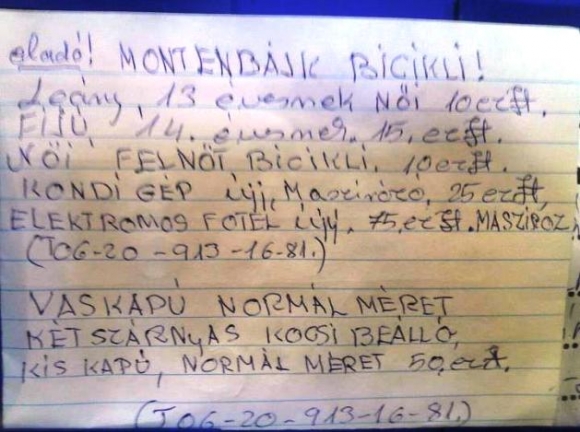 eladó! MONTENBÁJK BICIKLI!
Leány, 13 évesnek NŐI 10 erft.
FIJÚ, 14. évesnek. 15, erft.
NŐI FELNŐT, BICIKLI, 10 erft.
KONDI GÉP újj, Maszirozo, 25 erft,
ELEKTROMOS FOTEL újj. 75, erft. MASZIROZ
(T06-20-913-16-81.)
VASKAPÚ NORMÁL MÉRET
KÉTSZÁRNYAS KOCSI BEÁLLÓ,
KIS KAPÚ, NORMÁL MÉRET 50, erft.
(T06-20-913-16-81.)